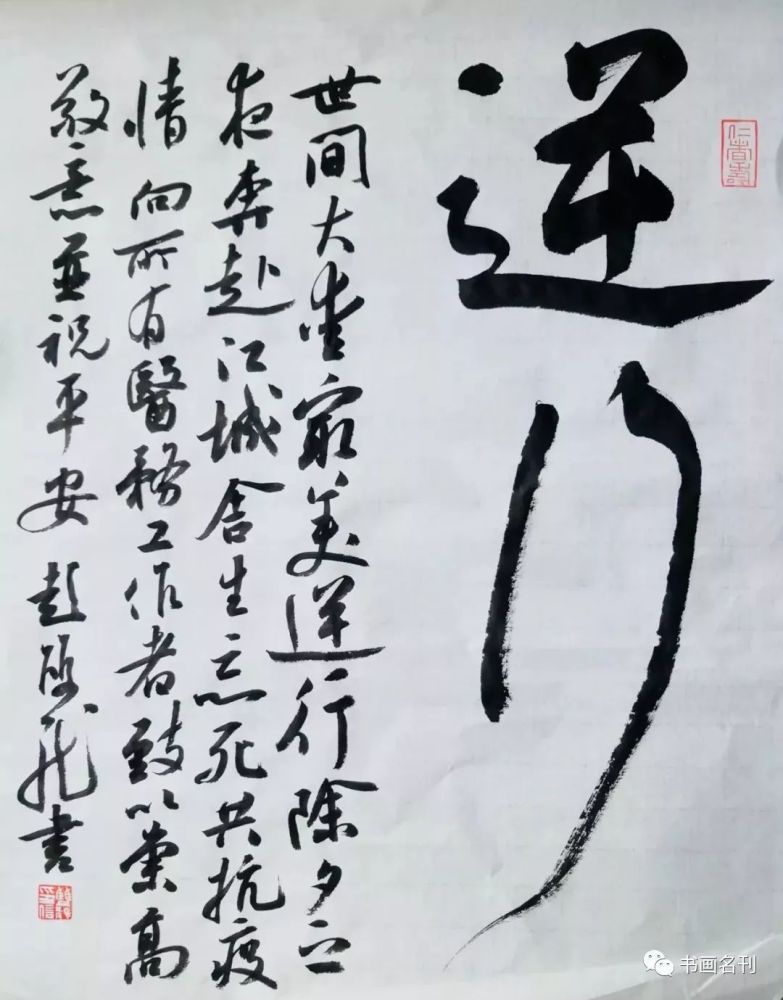 逆行
仁者壽
世間大愛最美逆行除夕之
夜奔赴江城舍生忘死共抗疫
情向所有醫務工作者致以崇高
敬意並祝平安 彭 書
书画名刊